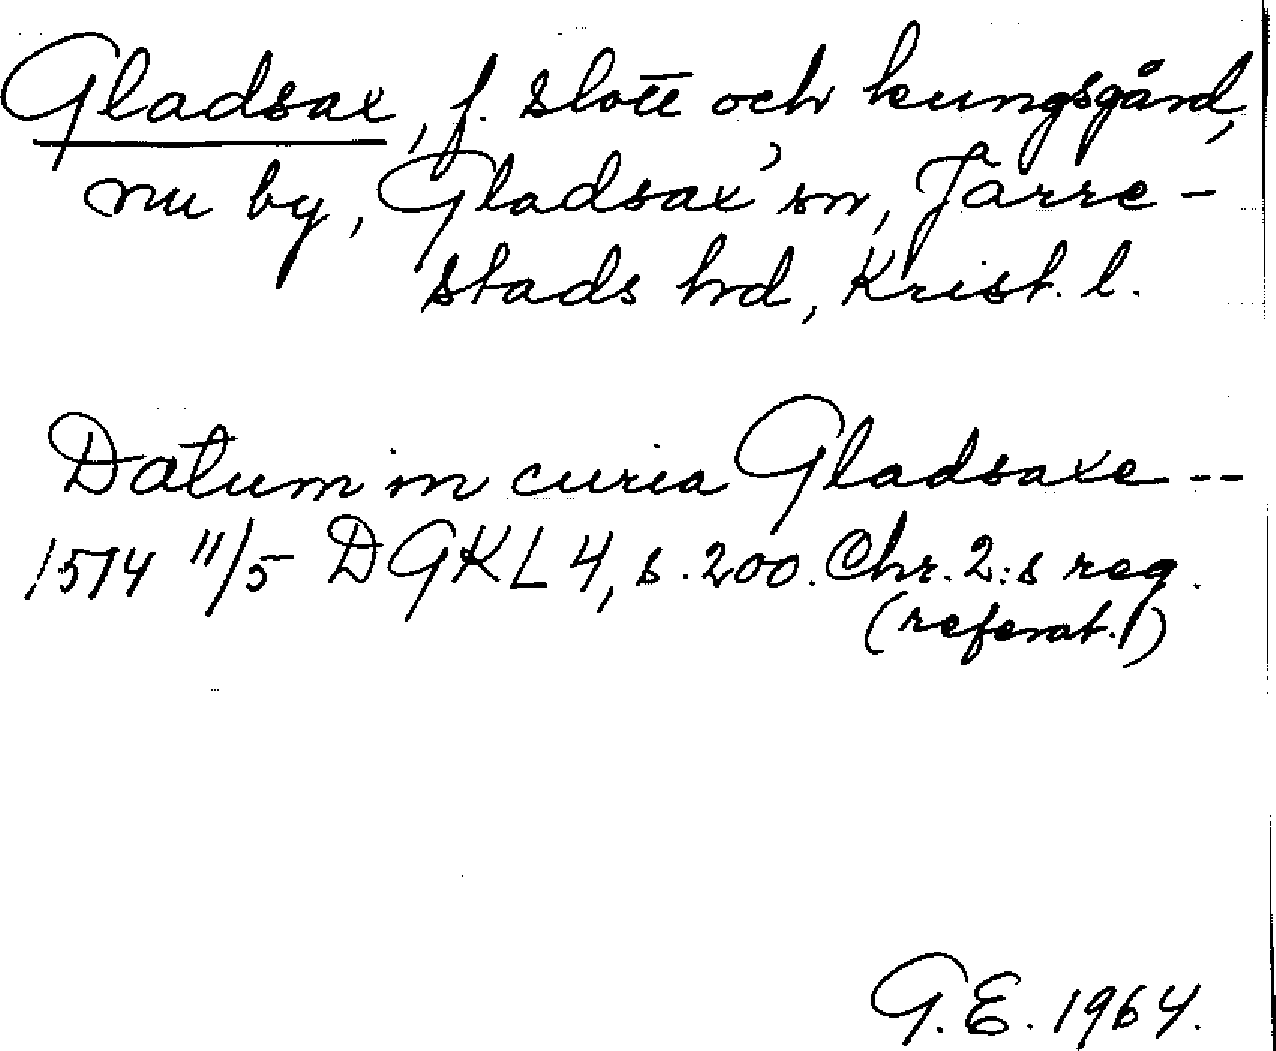 Gladsax, f. slott och kungsgård,
nu by, Gladsax' sn, Järre-
stads hd, Krist. l.
Datum in curia Gladsaxe --
1514 11/5 DGKL 4, s. 200. Chr. 2:s reg.
(referat.)
G.E. 1964.